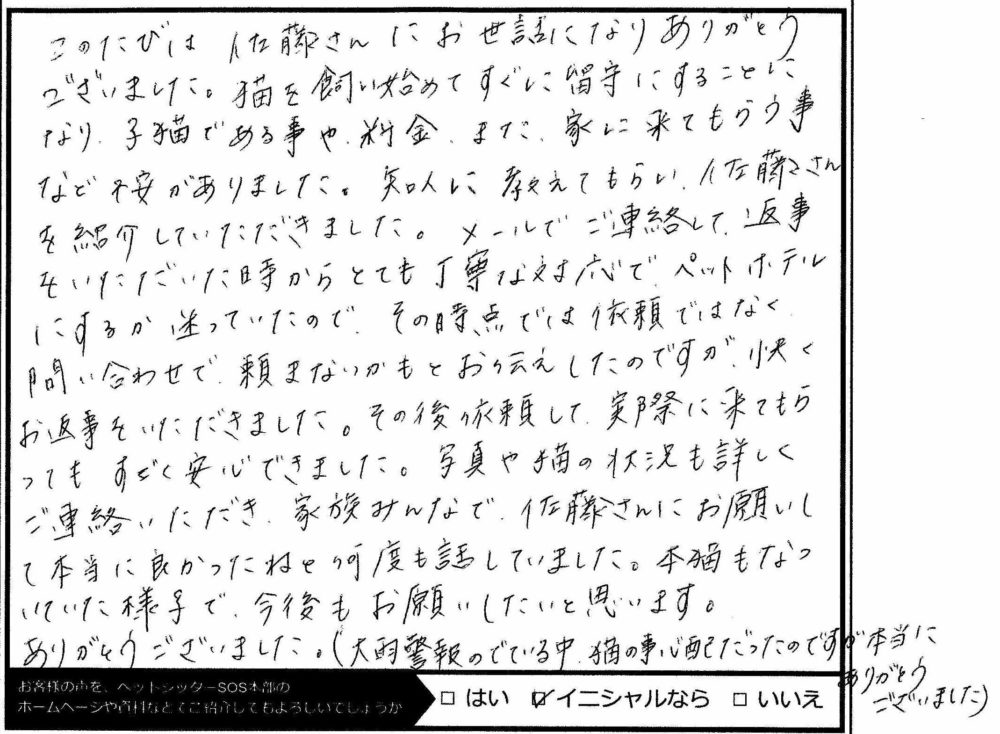 このたびは佐藤さんにお世話になりありがとう
ございました。猫を飼い始めてすぐに留守にすることに
なり、子猫である事や、料金、また、家に来てもらう事
など不安がありました。知人に教えてもらい、佐藤さん
を紹介していただきました。メールでご連絡して、返事
をいただいた時からとても丁寧な対応で、ペットホテル
にするか迷っていたので、その時点では依頼ではなく、
問い合わせで、頼まないかもとお伝えしたのですが、快く
お返事をいただきました。その後依頼して、実際に来てもら
ってもすごく安心できました。写真や猫の状況も詳しく
ご連絡いただき、家族みんなで、佐藤さんにお願いし
て本当に良かったねと何度も話していました。本猫もなつ
いていた様子で、今後もお願いしたいと思います。
ありがとうございました。(大雨警報のでている中、猫の事心配だったのですが本当に
ありがとう
ございました)
お客様の声を、ペットシッターSOS本部の
ホームページや資料などでご紹介してもよろしいでしょうか
□ はい ☑ イニシャルなら □ いいえ